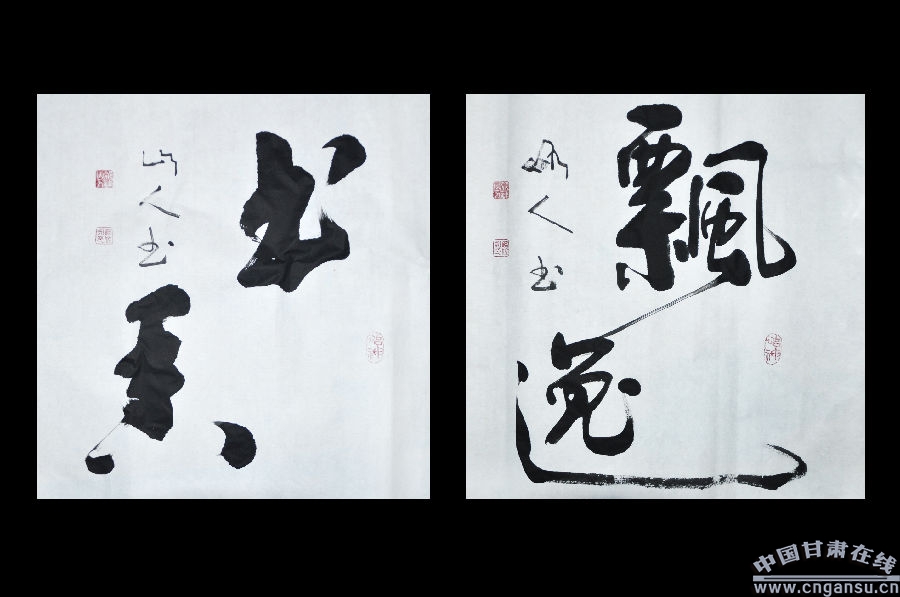 书
山人书
飄逸
山人书
中国甘肃在线
www.cngansu.cn